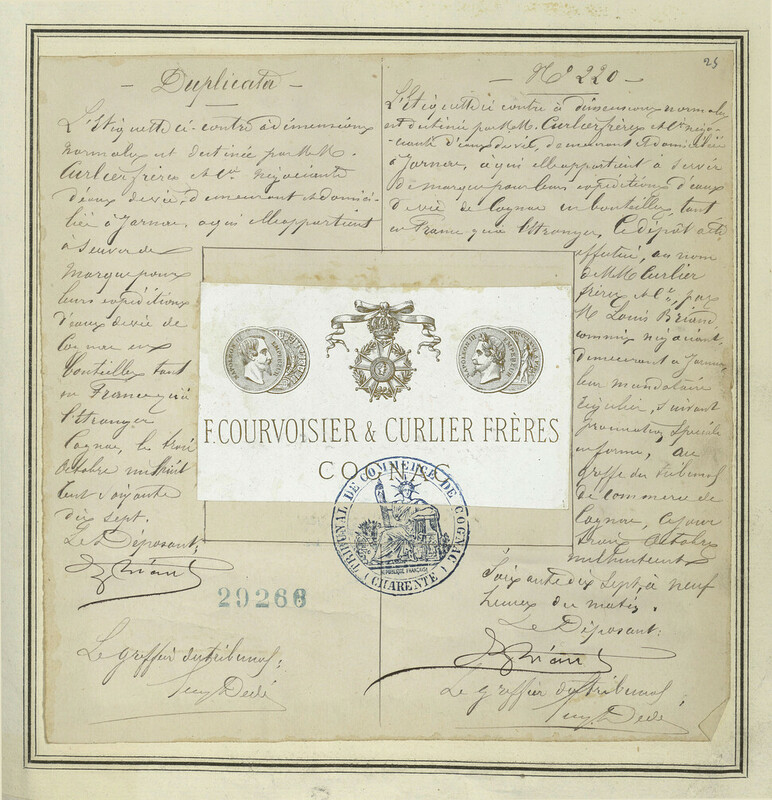 25
- Duplicata -
L'Etiquette ci-contre à dimensions
normales est destinée par M.M.
Curlier frères et Cie négociants
d'eaux de vie, demeurant et domici-
liés à Jarnac, à qui elle appartient
à servir de
marque pour
leurs expéditions
d'eaux de vie de
Cognac en
bouteilles tant
en France qu'à
l'Etranger
Cognac, le trois
Octobre mil huit
cent soixante
dix sept.
Le Déposant;
LBriand
29266
Le greffier du tribunal;
- No 220 -
L'Etiquette ci contre à dimensions normales
est destinée par M.M. Curlier frères et Cie négo-
ciants d'eaux de vie, demeurant et domiciliés
à Jarnac, à qui elle appartient à servir
de marque pour leurs expéditions d'eaux
de vie de Cognac en bouteilles, tant
en France qu'à l'Etranger. Ce dépôt a été
effectué, au nom
de M.M. Curlier
frères et Cie, par
M. Louis Briand
commis négociant,
demeurant à Jarnac,
leur mandataire
régulier, suivant
procuration spéciale
en forme, au
greffe du Tribunal
de commerce de
Cognac, ce jour
trois Octobre
mil huit cent
soixante dix sept, à neuf
heures du matin.
Le Déposant;
LBriand
Le greffier du tribunal;
NAPOLEON III EMPEREUR
NAPOLEON III EMPEREUR
F. COURVOISIER & CURLIER FRÈRES
COGNAC
TRIBUNAL DE COMMERCE DE COGNAC
(CHARENTE)
RÉPUBLIQUE FRANÇAISE